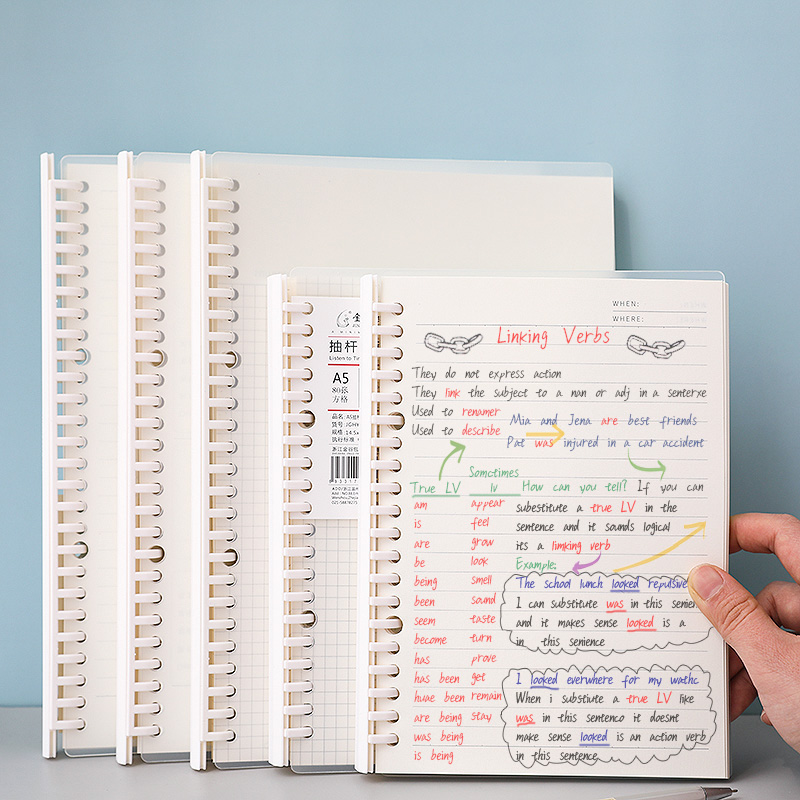 WHEN:
WHERE:
Linking Verbs
They do not express action
They link the subject to a nan or adj in a senterxe
Used to renamer
Used to describe
Mia and Jena are best friends
Pat was injured in a car accident
True LV
Somctimes
lv
am appear
is feel
are grow
be look
being smell
been sound
seem taste
become turn
has prove
has been get
huae been remain
are being stay
was being
is being
How can you tell? If you can
subsetitute a true LV in the
sentence and it sounds logical
its a limking verb
Example:
The school lunch looked repulsive
I can substitute was in this senien
and it makes sense looked is a
in this senience
I looked everwhere for my wathc
When i substiute a true LV like
was in this sentenco it doesnt
make sense looked is an action verb
in this sentence
抽杆
Listen to Tir
A5
80张
方格